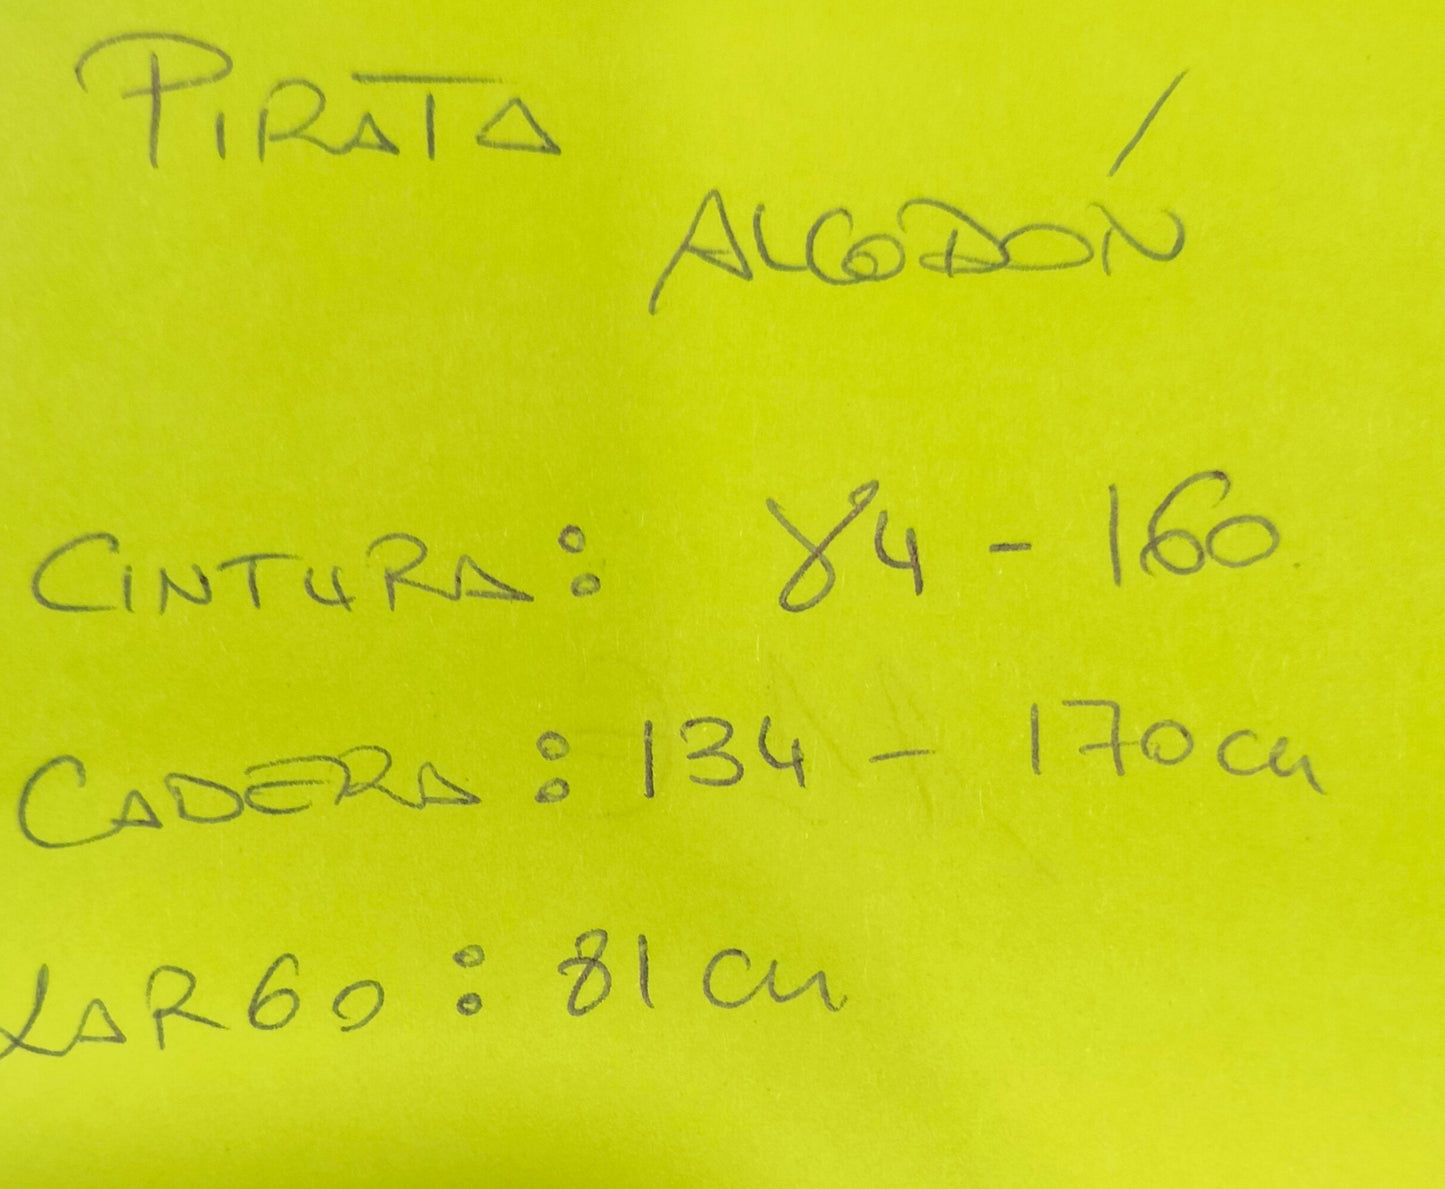 PIRATA
ALGODÓN
CINTURA: 84 - 160
CADERA: 134 - 170 cm
LARGO: 81 cm